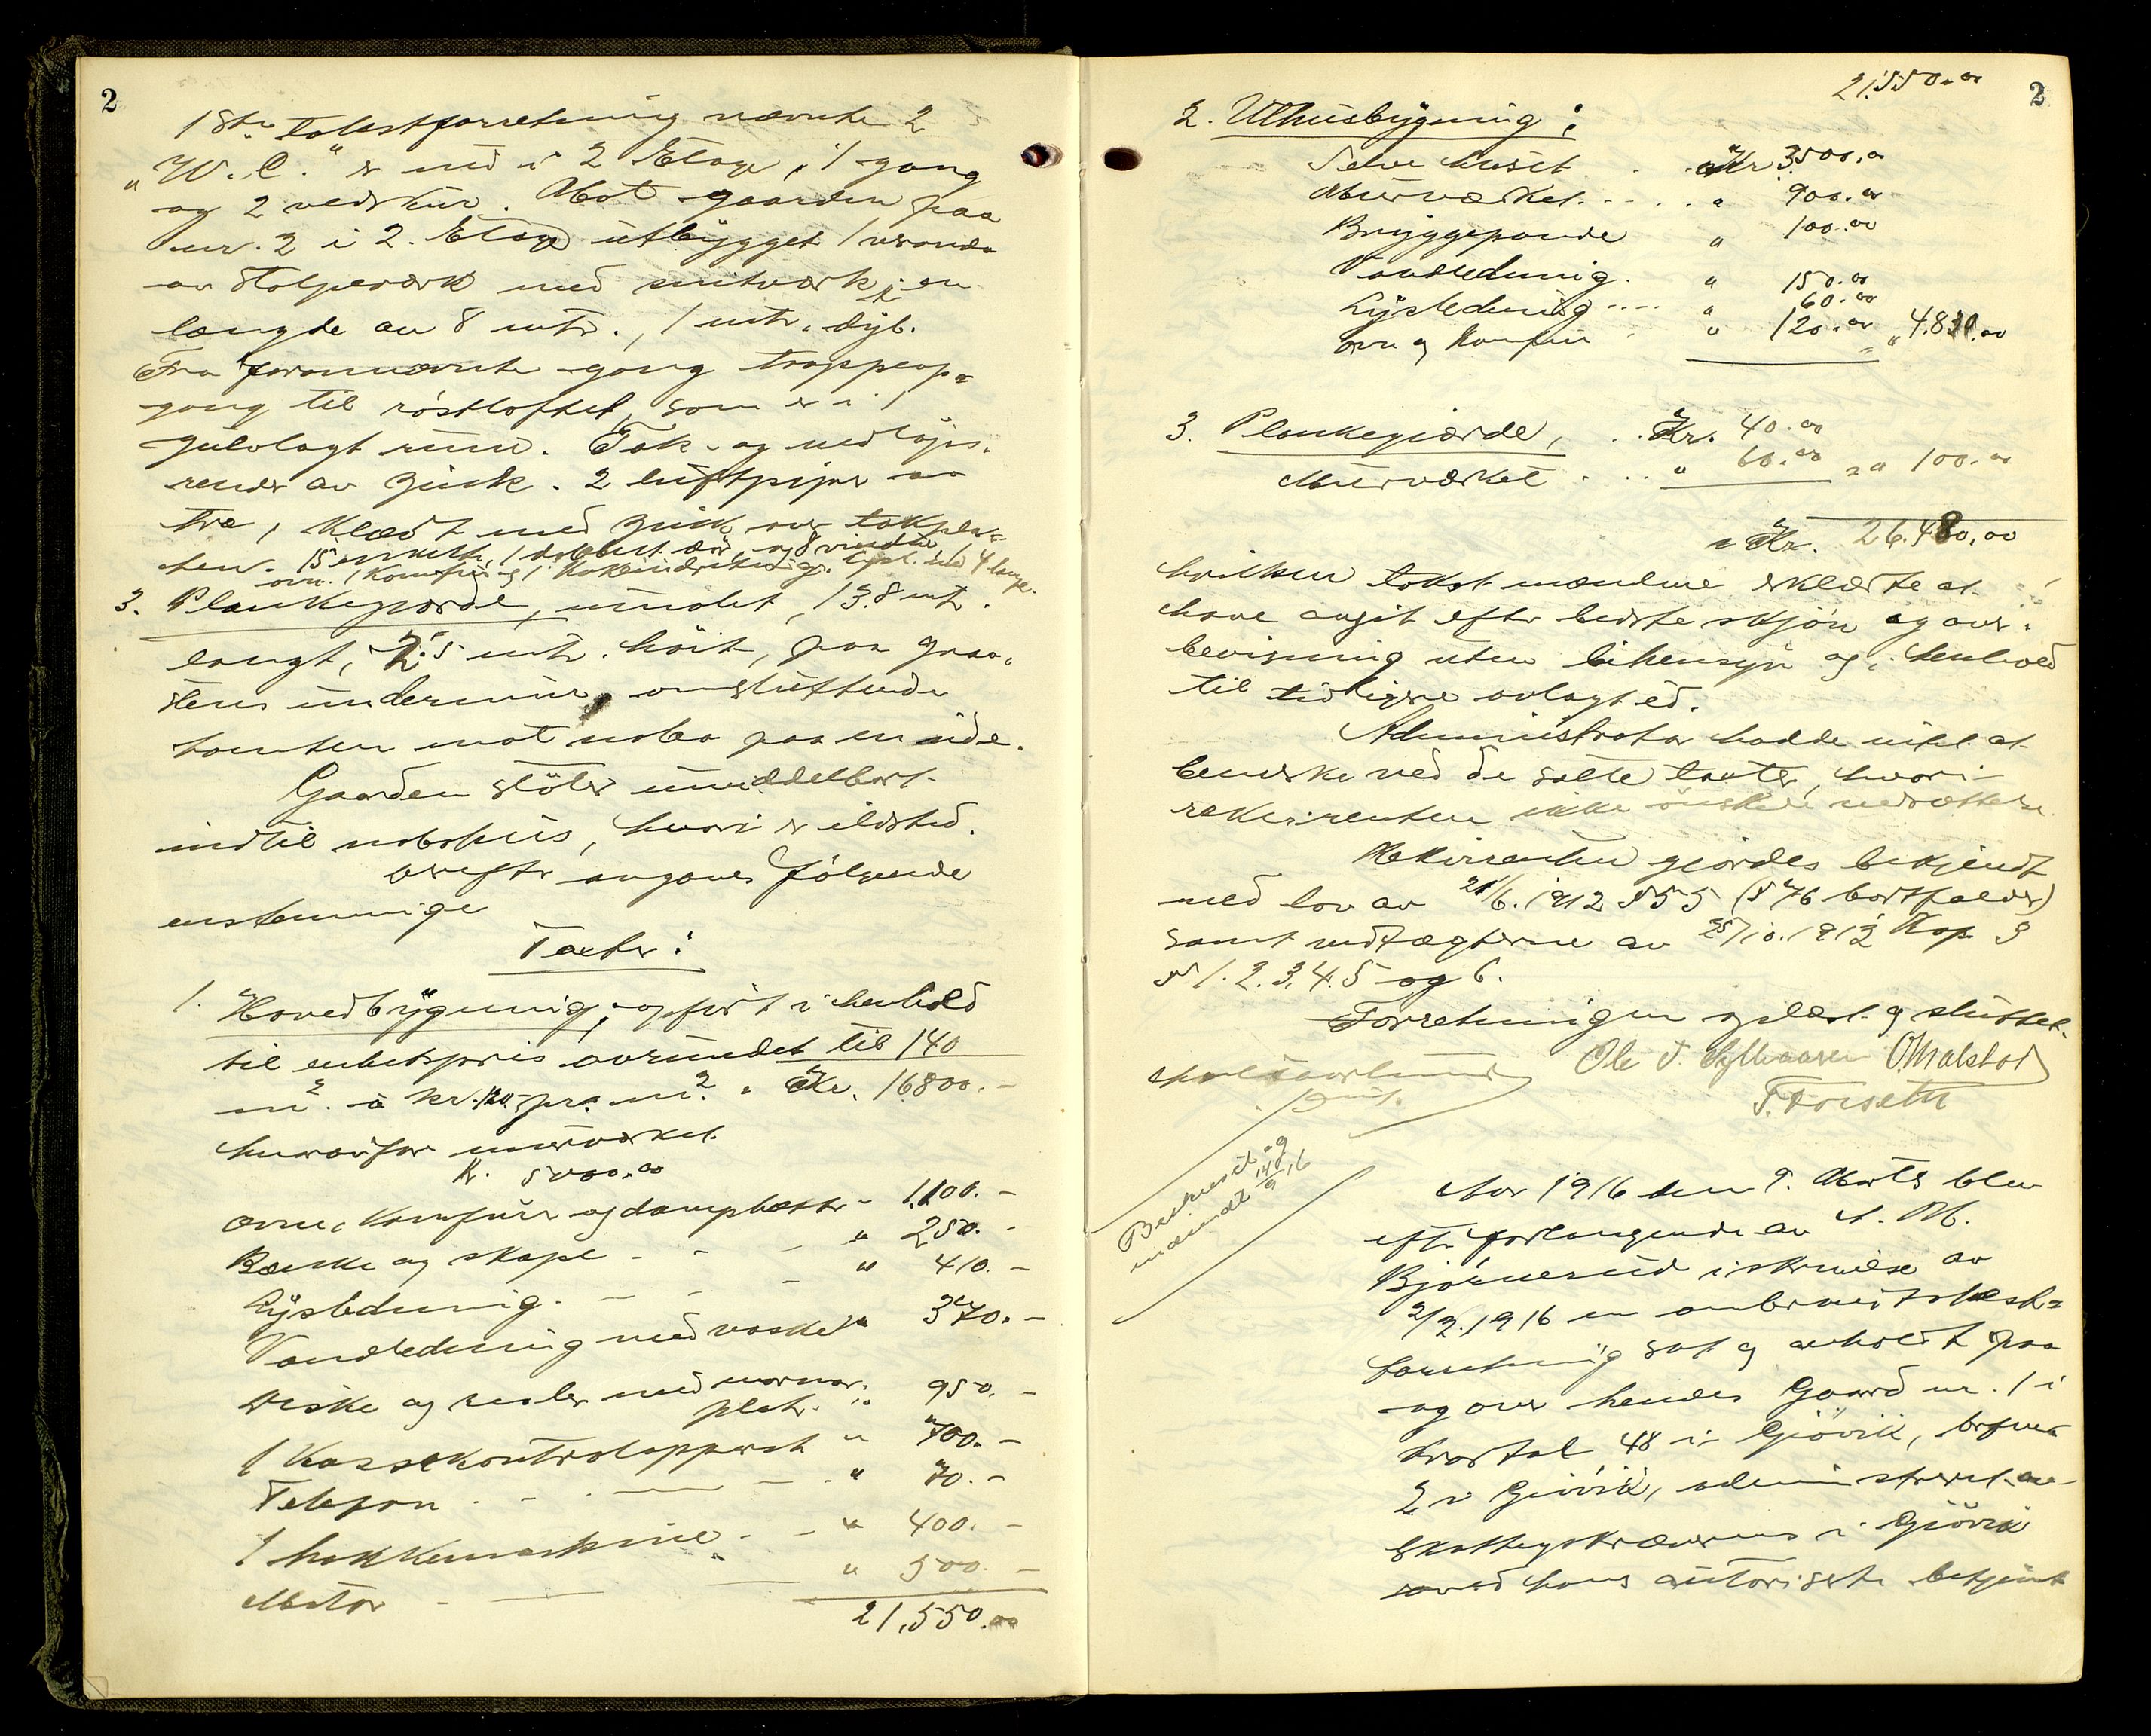 2
1ste takstforretning nævnte 2
"W. C." er ned i 2 Etage, 1 gang
og 2 vedskur. Mot gaarden paa
nr. 2 i 2. Etage utbygget 1 veranda
av stolpeværk med snitværk i en
længde av 8 mtr., 1 mtr. dyb.
Fra forannævnte gang trappeop-
gang til röstloftet, som er i 1
gulvlagt rum. Tak- og nedløps-
render av zink. 2 luftpiper av
træ, klædt med zink over takpla-
ten. 15 enkelte, 1 dobbelt dör og 8 vinduer,
ovn. 1 Komfur og 1 lysl. til 4 lamper.
3. Plankegjærde, umalet, 13.8 mtr.
langt, 2.5 mtr. høit, paa graa-
stens undermur, omsluttende
tomten mot nabo paa en side.
Gaarden stöter umiddelbart
indtil nabohus, hvori er ildsted.
Derefter avgaves følgende
enstemmige
Takster:
1. Hovedbygning, opført i henhold
til enhetspris avrundet til 140
m². à kr. 120 pr. m². " Kr. 16800.-
herav for murværket
Kr. 5000.00
Ovne, Komfur og dampbætte - 1.100.-
Bænke og skape - - - " 250.-
Lysledning. - - - " 410.-
Vandledning med vaske " 370.-
Diske og reoler med marmor-
plater " 950.-
1 Kassekontrolapparat " 700.-
Telefon - - - " 70.-
1 hakkemaskine - - " 400.-
Motor - - - " 500.-
21,550.00
21.550.00
2
2. Uthusbygning:
Selve huset . . Kr. 3500.00
Murværket . . . . " 900.00
Bryggepande " 100.00
Vandledning . " 150.00
Lysledning .... " 60.00
Ovn og Komfur " 120.00 " 4.830.00
3. Plankegjærde, . . Kr. 40.00
Murværket . . . " 60.00 " 100.00
Kr. 26.480,00
hvilken takst mændene erklærte at
have avgit efter bedste skjön og over-
bevisning uten bihensyn og i henhold
til tidligere avlagt ed.
Administrator hadde intet at
bemerke ved de satte takster, hvori
rekvirenten ikke önskede nedsættelse
Rekvirenten gjordes bekjendt
med lov av 21/6. 1912 § 55 (§ 76 bortfalder)
samt vedtægterne av 25/10. 1912 Kap 9
§§ 1. 2. 3. 4. 5 og 6.
Forretningen oplæst og sluttet.
Ole T. O. Malstad
T. Forseth
Beskrevet og
indsendt 14/9 16
Aar 1916 den 9. Marts blev
efter forlangende av A. M.
Bjørnerud i skrivelse av
2/3. 1916 en ombrandtakst-
forretning sat og avholdt paa
og over hendes Gaard nr. 1 i
Kvartal 48 i Gjövik, brfnr.
2 i Gjövik, administrert av
Skattegskræverens i Gjövik
ved hans autoriserte betjent